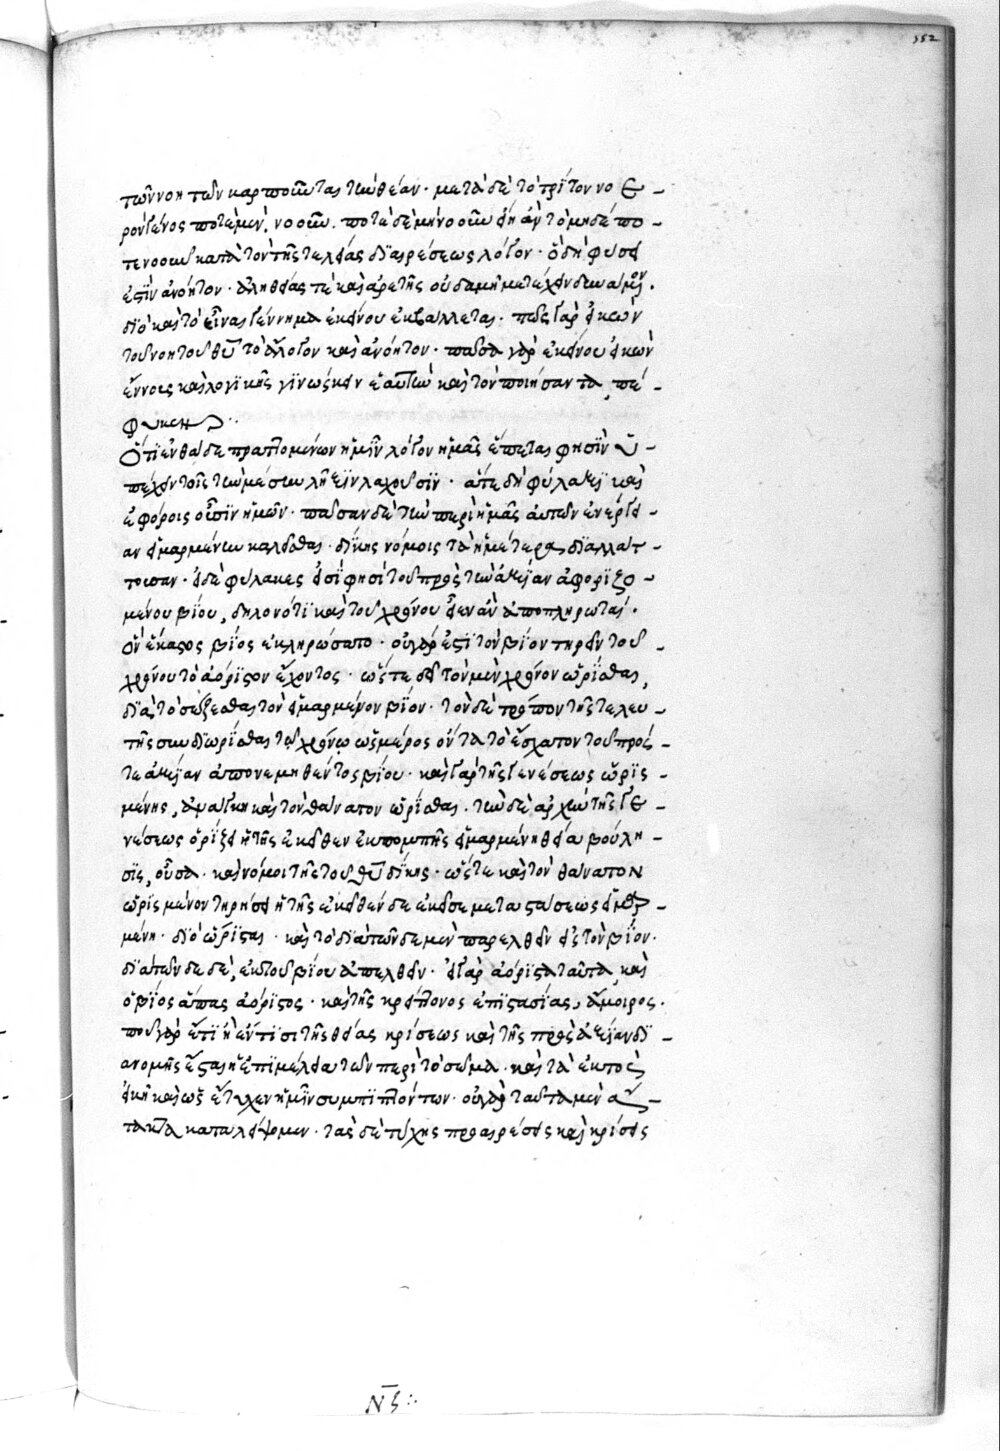 352
τῶν νοητῶν καρποῦται τὴν θέαν. μετὰ δὲ τὸ τρίτον νοε-
ρὸν γένος ποτὲ μὲν νοοῦν. ποτὲ δὲ μὴ νοοῦν εἴη ἂν τὸ μηδέπο-
τε νοοῦν κατὰ τὸν τῆς τελείας διαιρέσεως λόγον. ὃ δὴ φύσει
ἐστὶν ἀνόητον. ἀληθείας τε καὶ ἀρετῆς οὐδαμῆ μετέχειν δυνάμενον.
διὸ καὶ τὸ εἶναι γέννημα ἐκείνου ἐκβάλλεται. πῶς γὰρ εἰκὼν
τοῦ νοητοῦ θῦ τὸ ἄλογον καὶ ἀνόητον. πᾶσα γὰρ ἐκείνου εἰκὼν
ἔννους καὶ λογικῆς γινώσκειν ἑαυτὴν καὶ τὸν ποιήσαντα πέ-
φυκεν
Ὅτι ἐνθάδε πραττομένων ἡμῖν λόγον ἡμᾶς ἕπεται φησὶν ὑ-
πέχειν τοῖς τὴν μέσην λῆξιν λαχοῦσιν. ἅτε δὴ φύλαξι καὶ
ἐφόροις οὖσιν ἡμῶν. πᾶσαν δὲ τὴν περὶ ἡμᾶς αὐτῶν ἐνέργει-
αν εἱμαρμένην καλεῖσθαι. δίκης νόμοις τὰ ἡμέτερα διαλλάτ-
τουσαν. οἱ δὲ φύλακες εἰσί φησι τοῦ πρὸς τὴν ἀξίαν ἀφοριζο-
μένου βίου, δηλονότι καὶ τοῦ χρόνου ὃν ἂν ἀποπληρῶται.
ὃν ἕκαστος βίος ἐκληρώσατο. οὐ γὰρ ἔστι τὸν βίον τηρεῖν τοῦ
χρόνου τὸ ἀόριστον ἔχοντος. ὥστε δεῖ τὸν μὲν χρόνον ὡρίσθαι,
διὰ τὸ σώζεσθαι τὸν εἱμαρμένον βίον. τὸν δὲ τρόπον τῆς τελευ-
τῆς συνδιωρίσθαι τῷ χρόνῳ ὡς μέρος ὄντα τὸ ἔσχατον τοῦ πρός-
τε ἀξίαν ἀπονεμηθέντος βίου. καὶ γὰρ τῆς γενέσεως ὡρις-
μένης, ἀνάγκη καὶ τὸν θάνατον ὡρίσθαι. τὴν δὲ ἀρχὴν τῆς γε-
νέσεως ὁρίζει ἡ τῆς ἐκεῖθεν ἐκπομπῆς εἱμαρμένη θεία βούλη-
σις, οὖσα. καὶ νόμοι τῆς τοῦ θῦ δίκης. ὥστε καὶ τὸν θάνατον
ὡρισμένον τηρήσει ἡ τῆς ἐκεῖθεν δε ἐκεῖσε μεταστάσεως εἱμαρ-
μένη. διὸ ὥρισται. καὶ τὸ διὰ τῶνδε μὲν παρελθεῖν εἰς τὸν βίον.
διὰ τῶνδε δὲ, ἐκ τοῦ βίου ἀπελθεῖν. εἰ γὰρ ἀόριστα ταῦτα, καὶ
ὁ βίος ἅπας ἀόριστος. καὶ τῆς κρείττονος ἐπιστασίας, ἄμοιρος.
ποῦ γὰρ ἔτι ἡ ἐν τίσι τῆς θείας κρίσεως καὶ τῆς πρὸς ἀξίαν δι-
ανομῆς ἔσται ἡ ἐπιμέλεια τῶν περὶ τὸ σῶμα. καὶ τὰ ἐκτὸς
εἰκῆ καὶ ὡς ἔτυχεν ἡμῖν συμπιπτόντων. οὐ γὰρ ταῦτα μὲν αὐ-
τὰ καταλείψομεν. τὰς δὲ τύχης προαιρέσεις καὶ κρίσεις
Νς